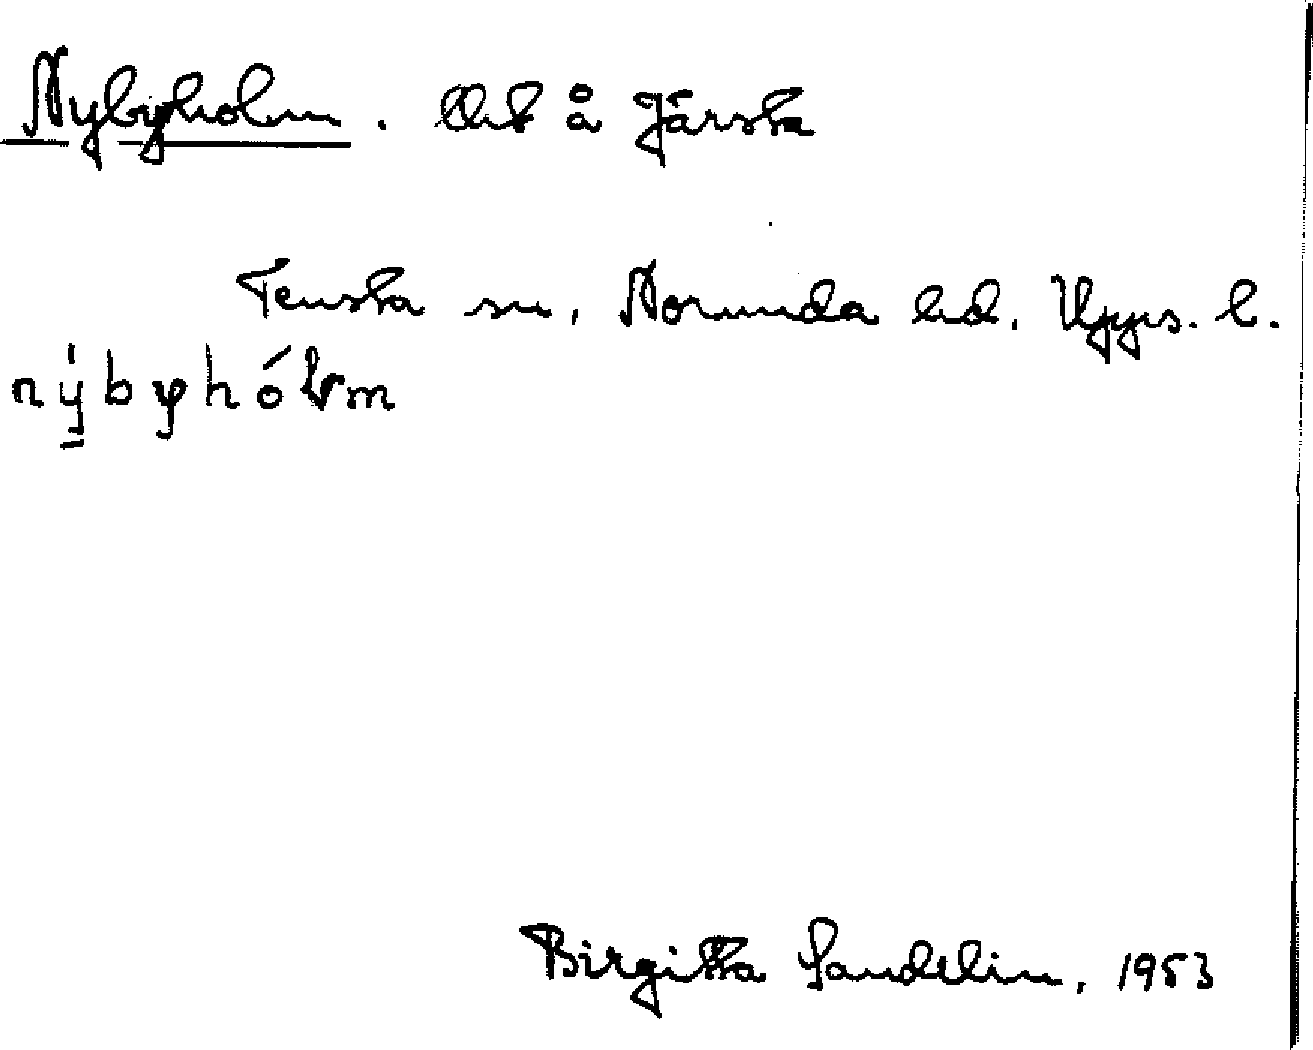 Nybyholm. Ort å Järsta
Tensta sn, Norunda hd. Upps. l.
nýbyhólm
Birgitta Sandelin, 1953